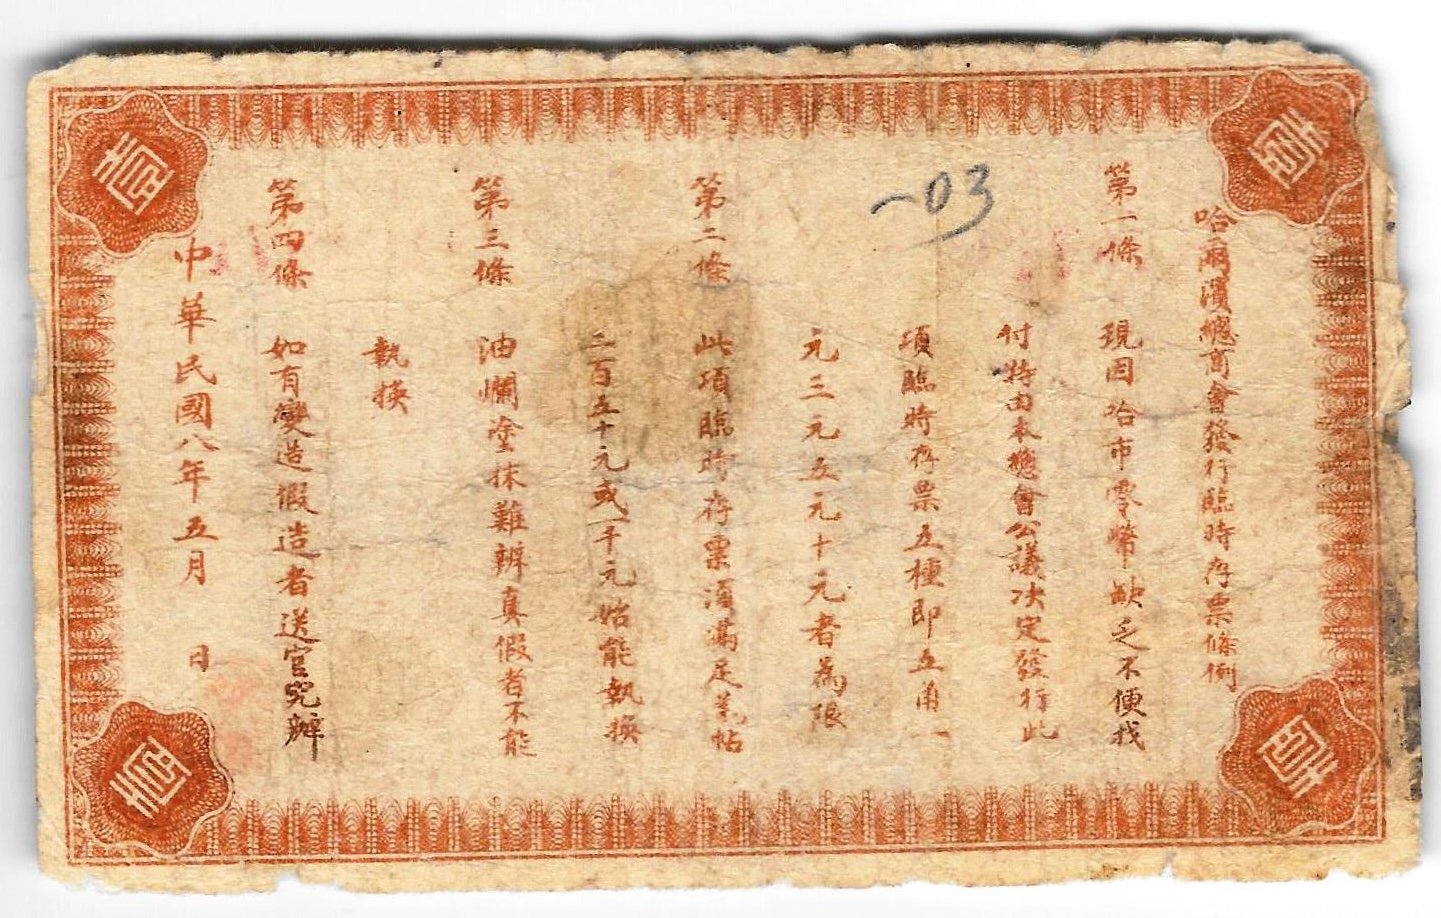 哈爾濱總商會發行臨時存票條例
第一條 現因哈市零幣缺乏不便找
付特由本總會公議決定發行此
項臨時存票五種即五角一
元三元五元十元者爲限
第二條 此項臨時存票須滿足羌帖
二百五十元或一千元始能執換
第三條 油爛塗抹難辨真假者不能
執換
第四條 如有變造假造者送官究辦
中華民國八年五月 日
壹
壹
壹
壹
-03